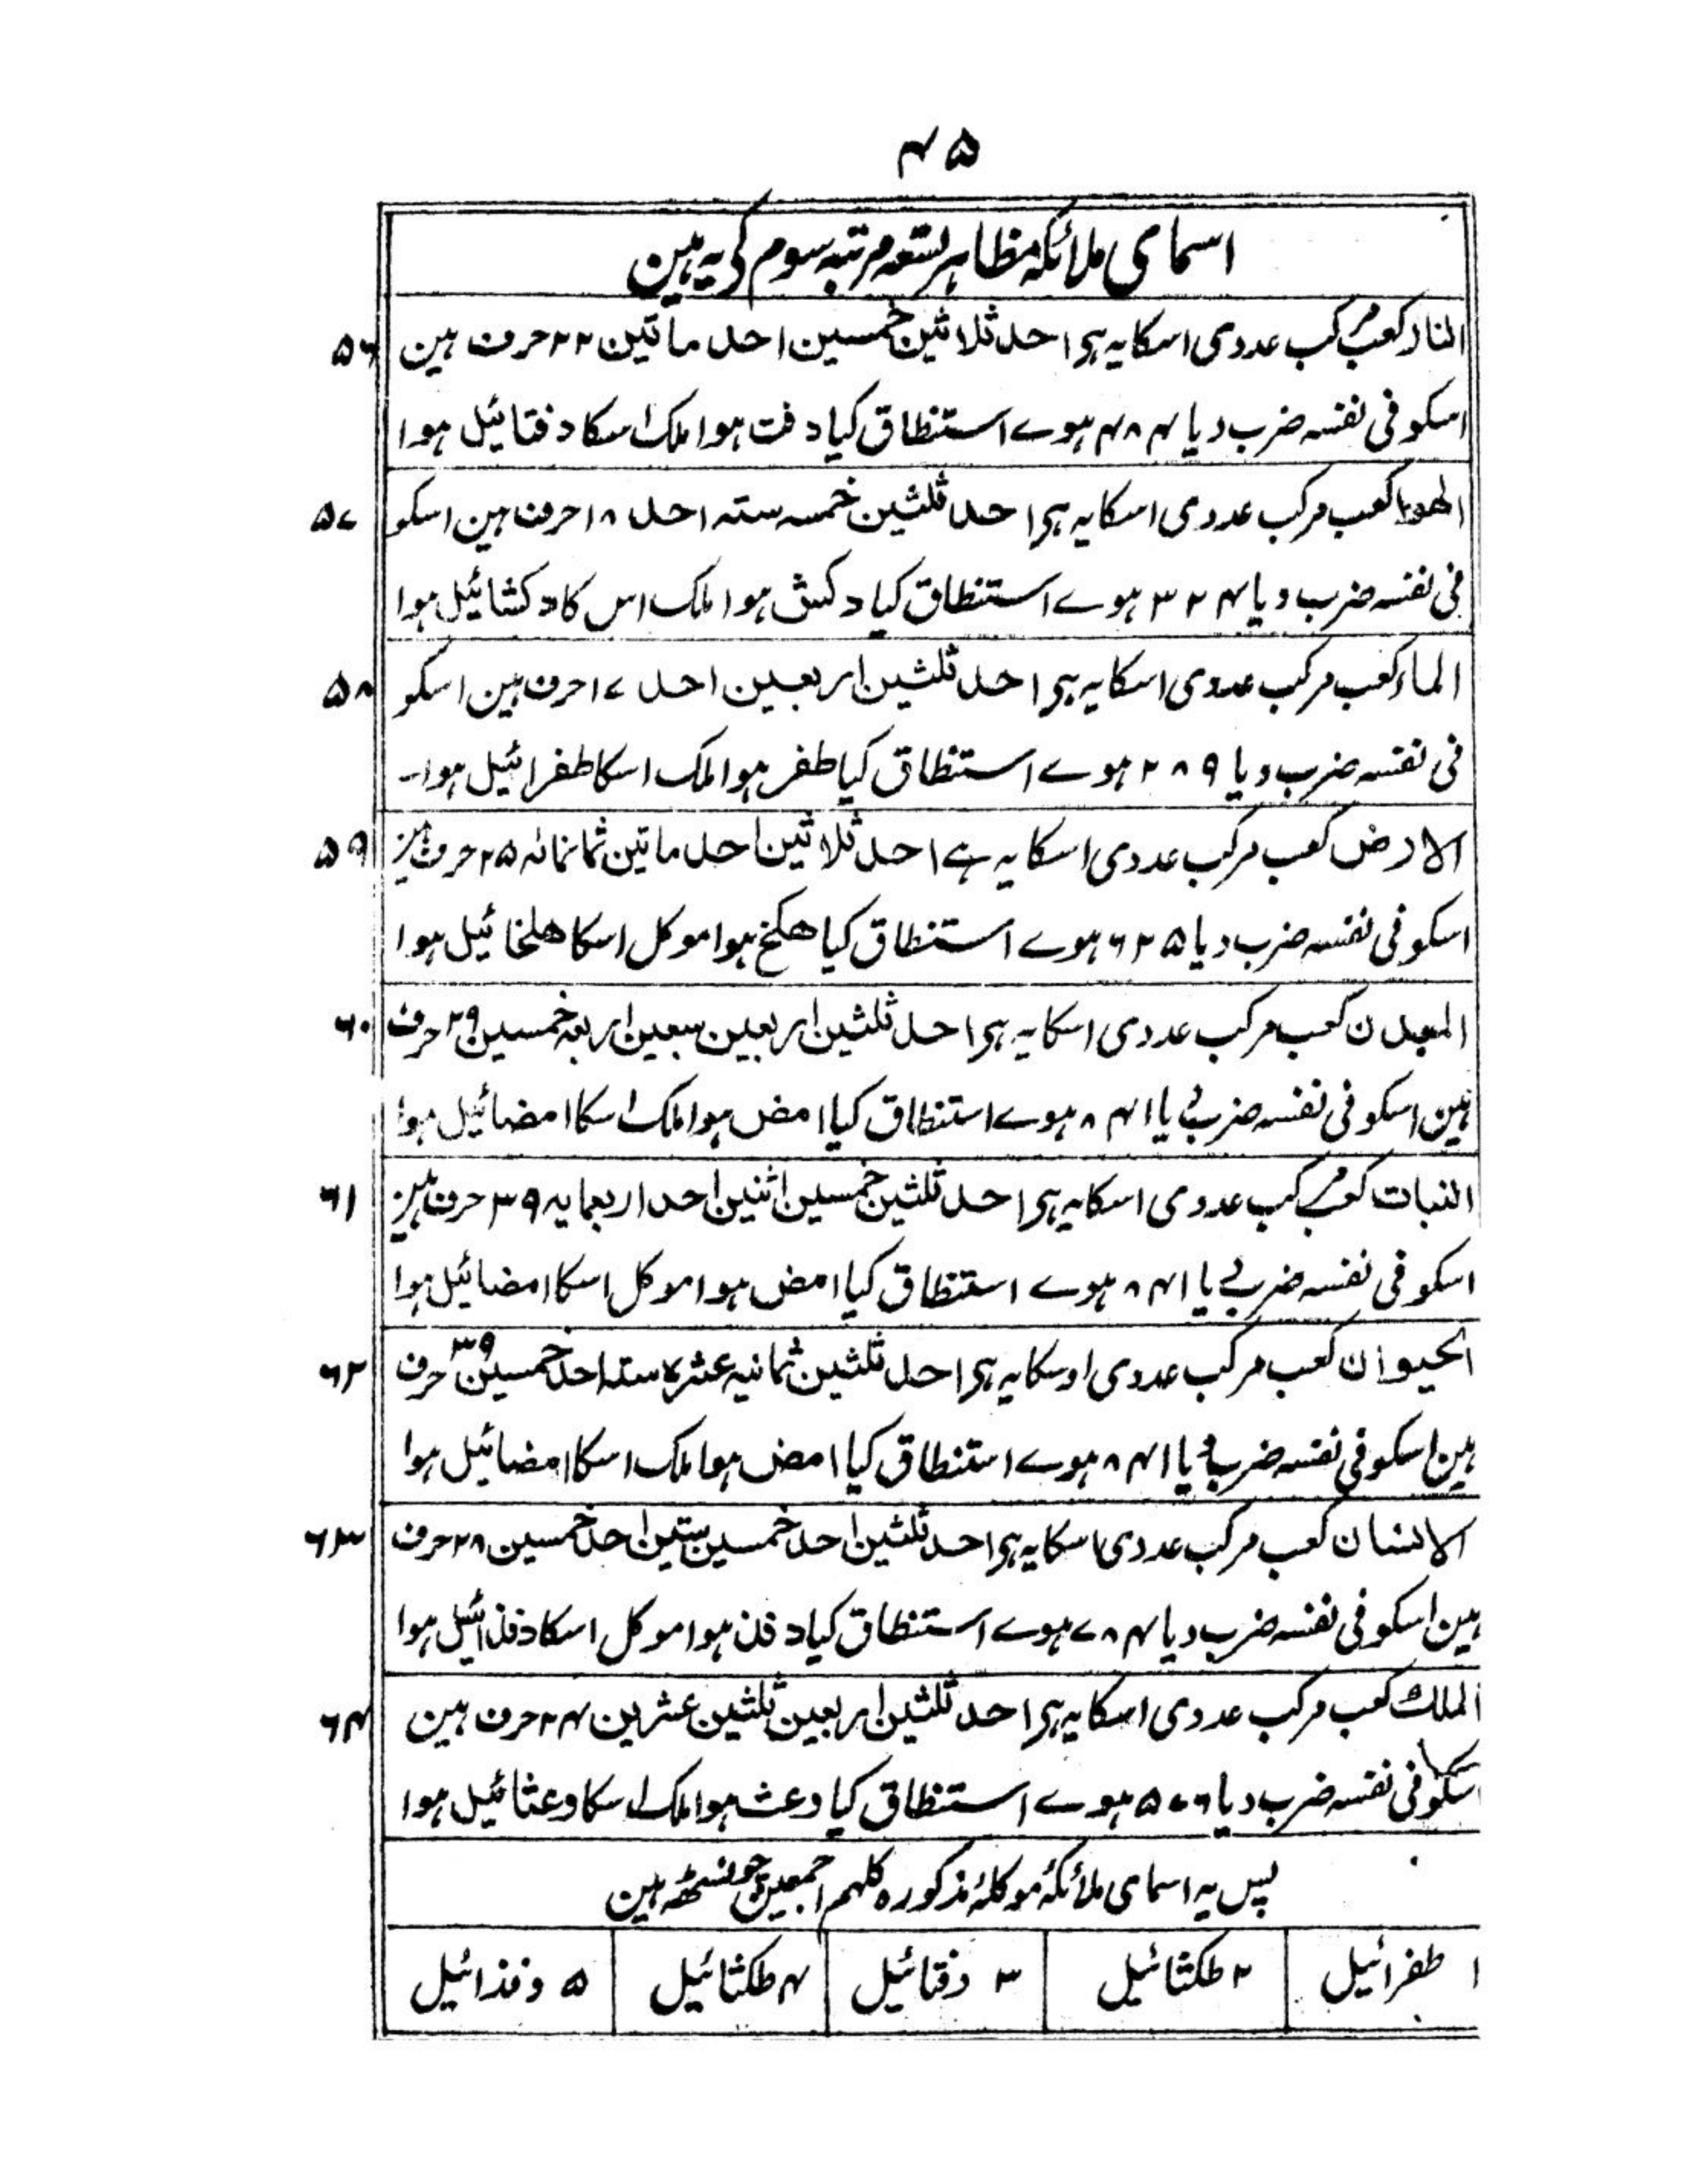 ۴۵
اسمای ملائکہ مظاہر تسعہ مرتبہ سوم کی یہ ہین
۵۶ النار کعب مرکب عددی اسکا یہ ہی احد ثلاثین خمسین احد ماتین ۲۲ حرف ہین
اسکو فی نفسہ ضرب دیا ۴۸۴ ہوے استنطاق کیا دفت ہوا ملک اسکا دفتائیل ہوا
۵۷ الھوا کعب مرکب عددی اسکا یہ ہی احد ثلثین خمسہ ستہ احد ۱۸ حرف ہین اسکو
فی نفسہ ضرب دیا ۳۲۴ ہوے استنطاق کیا دکش ہوا ملک اس کا دکشائیل ہوا
۵۸ الماء کعب مرکب عددی اسکا یہ ہی احد ثلثین اربعین احد ۱۷ حرف ہین اسکو
فی نفسہ ضرب دیا ۲۸۹ ہوے استنطاق کیا طفر ہوا ملک اسکا طفرائیل ہوا۔
۵۹ الارض کعب مرکب عددی اسکا یہ ہے احد ثلاثین احد ماتین ثمانمائہ ۲۵ حرف ہین
اسکو فی نفسہ ضرب دیا ۶۲۵ ہوے استنطاق کیا ھکخ ہوا موکل اسکا ھلخائیل ہوا
۶۰ المعدن کعب مرکب عددی اسکا یہ ہی احد ثلثین اربعین سبعین اربعہ خمسین ۲۹ حرف
ہین اسکو فی نفسہ ضرب دیا ۸۴۱ ہوے استنطاق کیا امض ہوا ملک اسکا امضائیل ہوا
۶۱ النبات کعب مرکب عددی اسکا یہ ہی احد ثلثین خمسین اثنین احد اربعمایہ ۳۹ حرف ہین
اسکو فی نفسہ ضرب دیا ۸۴۱ ہوے استنطاق کیا امض ہوا موکل اسکا امضائیل ہوا
۶۲ الحیوان کعب مرکب عددی اوسکا یہ ہی احد ثلثین ثمانیہ عشرہ ستہ احد خمسین ۳۹ حرف
ہین اسکو فی نفسہ ضرب دیا ۸۴۱ ہوے استنطاق کیا امض ہوا ملک اسکا امضائیل ہوا
۶۳ الانسان کعب مرکب عددی اسکا یہ ہی احد ثلثین احد خمسین ستین احد خمسین ۲۸ حرف
ہین اسکو فی نفسہ ضرب دیا ۷۸۴ ہوے استنطاق کیا دفذ ہوا موکل اسکا دفذائیل ہوا
۶۴ الملک کعب مرکب عددی اسکا یہ ہی احد ثلثین اربعین ثلثین عشرین ۲۴ حرف ہین
اسکو فی نفسہ ضرب دیا ۵۷۶ ہوے استنطاق کیا وعث ہوا ملک اسکا وعثائیل ہوا
پس یہ اسمای ملائکۂ موکلۂ مذکورہ کلہم اجمعین چونسٹھ ہین
۱ طفرائیل ۲ طکثائیل ۳ دفتائیل ۴ طکثائیل ۵ دفذائیل